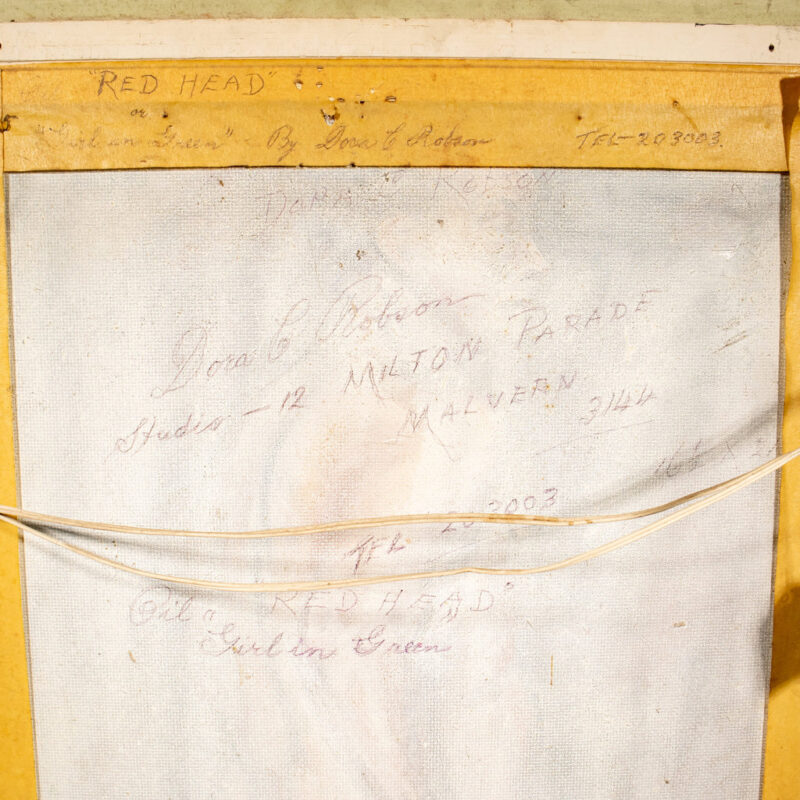 "RED HEAD"
or
"Girl in Green" - By Dora C Robson TEL-203003.
ROBSON
Dora C Robson
Studio - 12 MILTON PARADE
MALVERN 3144
16½ X
TEL 203003
Oil "RED HEAD"
Girl in Green